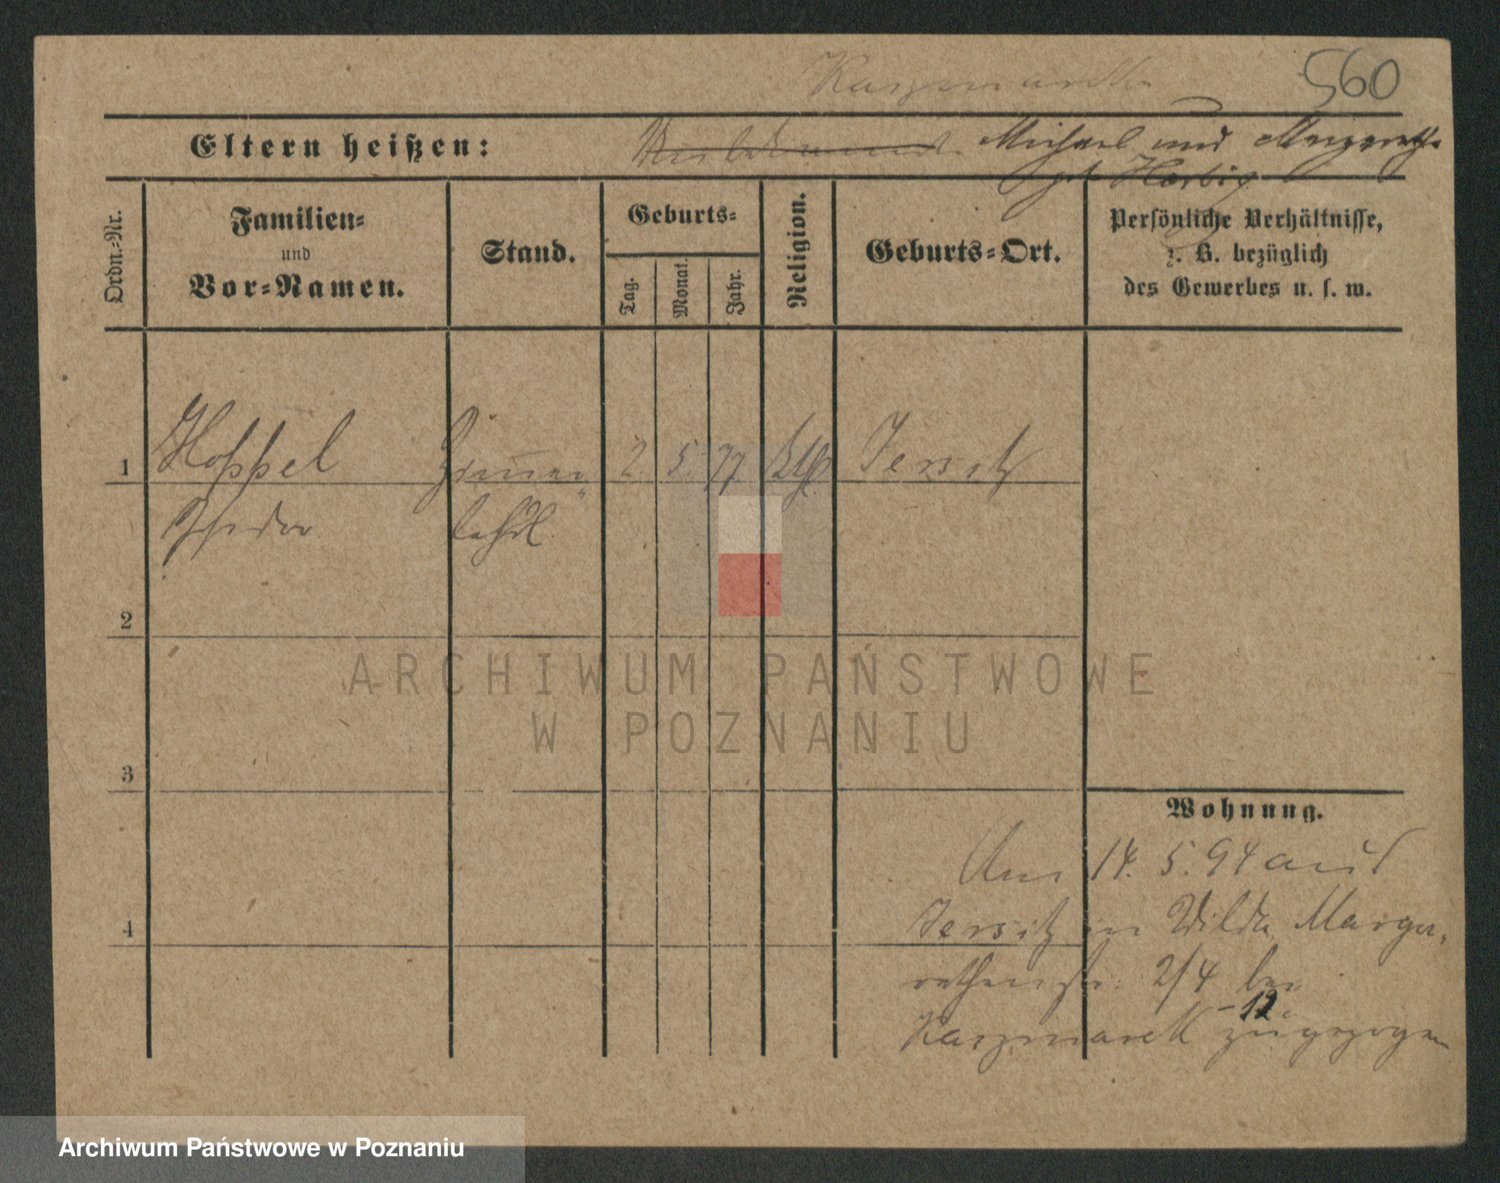 Kaczmarek
560
Eltern heißen: Michael und
geb. Herbig
Ordn.-Nr.
Familien-
und
Vor-Namen.
Stand.
Geburts-
Tag.
Monat.
Jahr.
Religion.
Geburts-Ort.
Persönliche Verhältnisse,
z. B. bezüglich
des Gewerbes u. s. w.
1 Hoppel Zimmer- 2. 5. 77 Ktl. Jersitz
Isidor lehrl.
2
3
4
ARCHIWUM PAŃSTWOWE
W POZNANIU
Wohnung.
Am 14. 5. 94 aus
Jersitz in Wilda, Marga-
rethenstr. 2/4 bei
12
Kaczmarek zugezogen
Archiwum Państwowe w Poznaniu